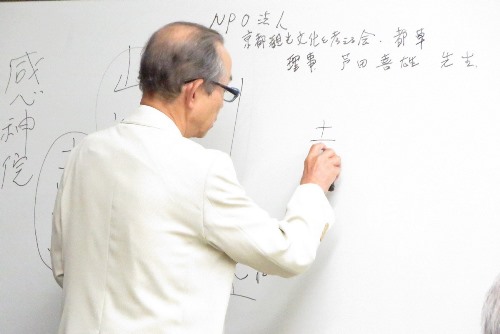 NPO法人
京都観光文化を考える会・都草
理事 芦田喜雄 先生
感神院